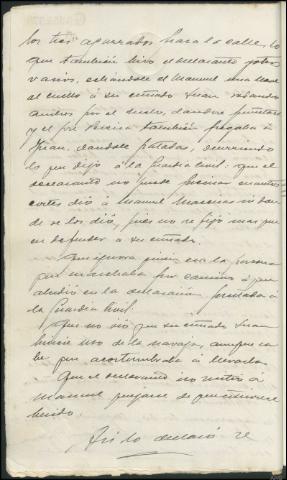 los tres agarrados hacia la calle, lo
que también hizo el declarante por
varios, echándole el Manuel una mano
al cuello á su cuñado Juan rodando
ambos por el suelo, dandose puñetazos
y el José también pegaba á
Juan, dandole patadas, ocurriendo
lo que dijo á la Guardia Civil: que el
declarante no puede precisar cuantos
cortes dió á Manuel ni don
de se los dió, pues no se fijó mas que
en defender a su cuñado.
Que ignora quien era la persona
que marchaba por camino á que
aludió en la declaración prestada á
la Guardia Civil.
Que no vió que su cuñado Juan
hiciese uso de la navaja, aunque sa
be que acostumbraba á llevarla.
Que el declarante no notó á
Manuel quejarse de que estuviese
herido.
Así lo declaró